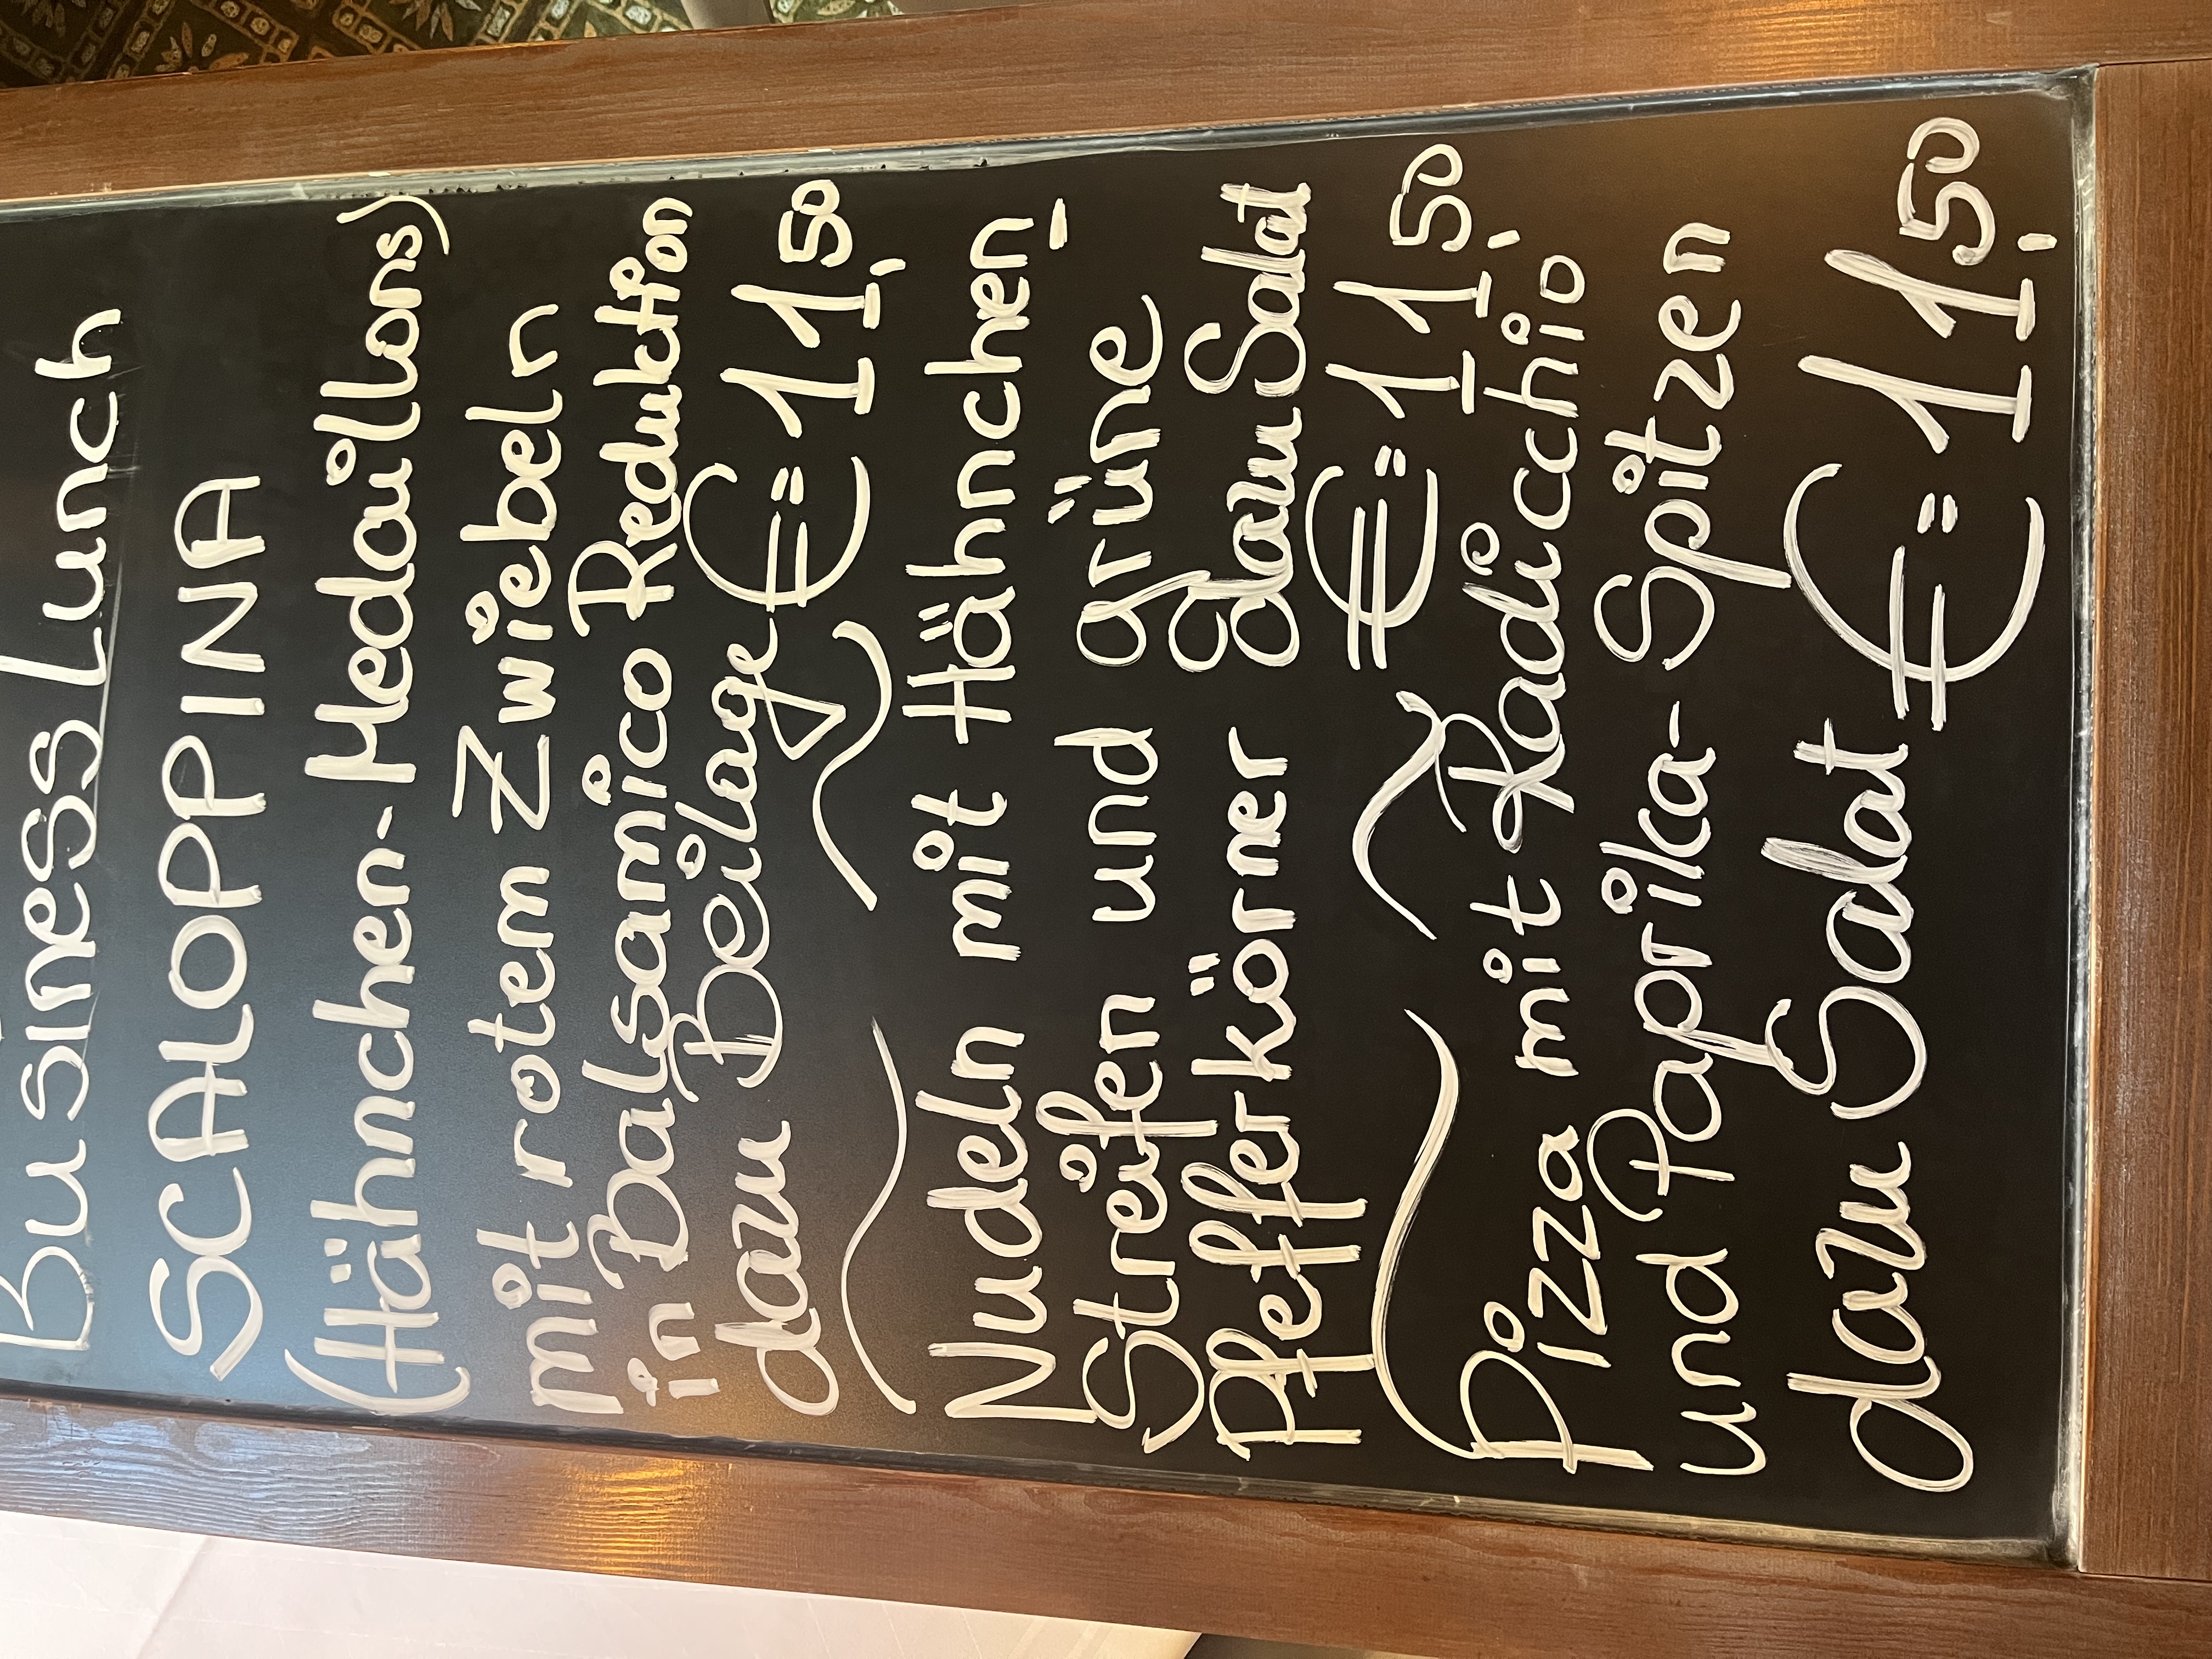 Business Lunch
SCALOPPINA
(Hähnchen-Medaillons)
mit rotem Zwiebeln
in Balsamico Reduktion
dazu Beilage €=11,50
Nudeln mit Hähnchen-
Streifen und grüne
Pfefferkörner dazu Salat
€=11,50
Pizza mit Radicchio
und Paprika-Spitzen
dazu Salat €=11,50